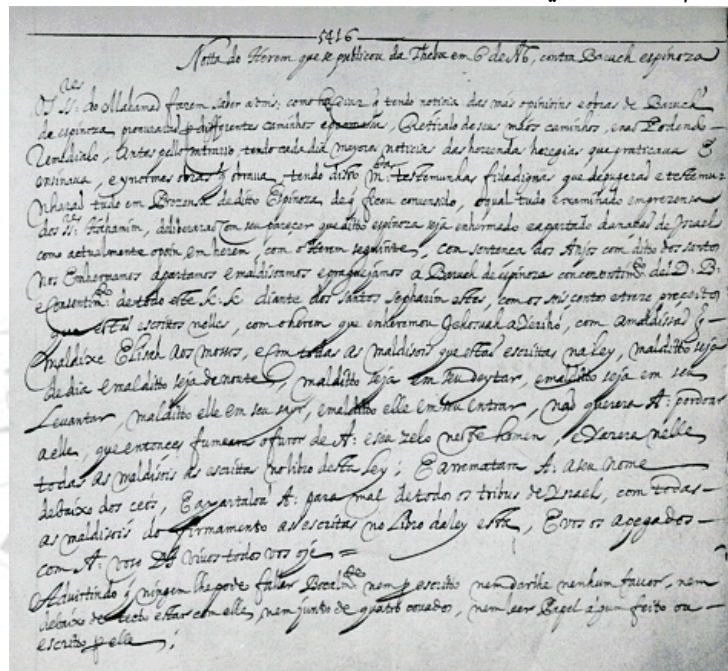 5416
Notta do Herem que se publicou da Theba em 6 de Ab, contra Baruch espinoza
Os SSres: do Mahamad fazem saber a Vms: como ha diaz q tendo noticia das mâs opinioins e obras de Baruch
de espinoza procuraraõ p differentes caminhos e promessas, Retiralo de seus mâos caminhos, e naõ Podendo
Remedialo, Antes pello contrario, tendo cada dia mayores noticias das horrendas heregias que praticava E
ensinava, e ynormes obras q obrava, tendo disto mtas: testemunhas fidedignas que depugeraõ e testemu
nharaõ tudo em Prezensa de ditto Espinoza, de q ficou convensido, o qual tudo examinado em prezensa
dos SSres: Hahamim, deliberaraõ com seu parecer que ditto espinoza seja enhermado e apartado da naçaõ de Israel
como actualmente o poin em herem, com o Herem seguinte, Com sentensa dos Anjos com ditto dos santos
Nos Enhermamos apartamos e maldisoamos e praguejamos a Baruch de espinoza com consentimto: del D: B:
e Consentimto: de todo este K: K: diante dos santos sepharim estes, com os seis centos e treze preceitos
que estaõ escrittos nelles, com o herem que enheremou Jehosuah a Yeriho, com a maldissaõ q
maldixe Elisah aos mossos, e Com todas as maldisois que estaõ escrittas na ley, malditto seja
de dia e malditto seja de noute, malditto seja em seu deytar, e malditto seja em seu
Levantar, malditto elle em seu sayr, e malditto elle em seu entrar, naõ quererâ A: perdoar
a elle, que entonces fumearâ o furor de A: e seu zelo neste homem, e yazerâ nelle
todas as maldisois as escrittas no libro desta Ley; E arrematarâ A: a seu nome
debaixo dos ceos, E apartaloa A: para mal de todos os tribus de Ysrael, com todas
as maldisois do firmamento as escritas no Libro da ley este, E vos os apegados
com A: voso Ds vivos todos vos oje =
Advirtindo q ningem lhe pode falar Bocalmte: nem p escritto nem darlhe nenhum favor, nem
debaixo de tecto estar com elle, nem junto de quatro covados, nem leer Papel algum feito ou
escritto p elle;